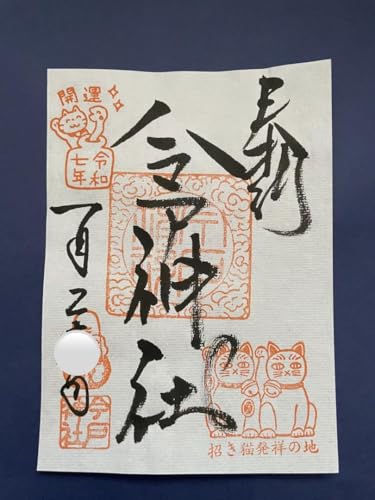 奉拝
今戸神社
開運
令和
七年
一月
日
今戸
神社
招き猫発祥の地